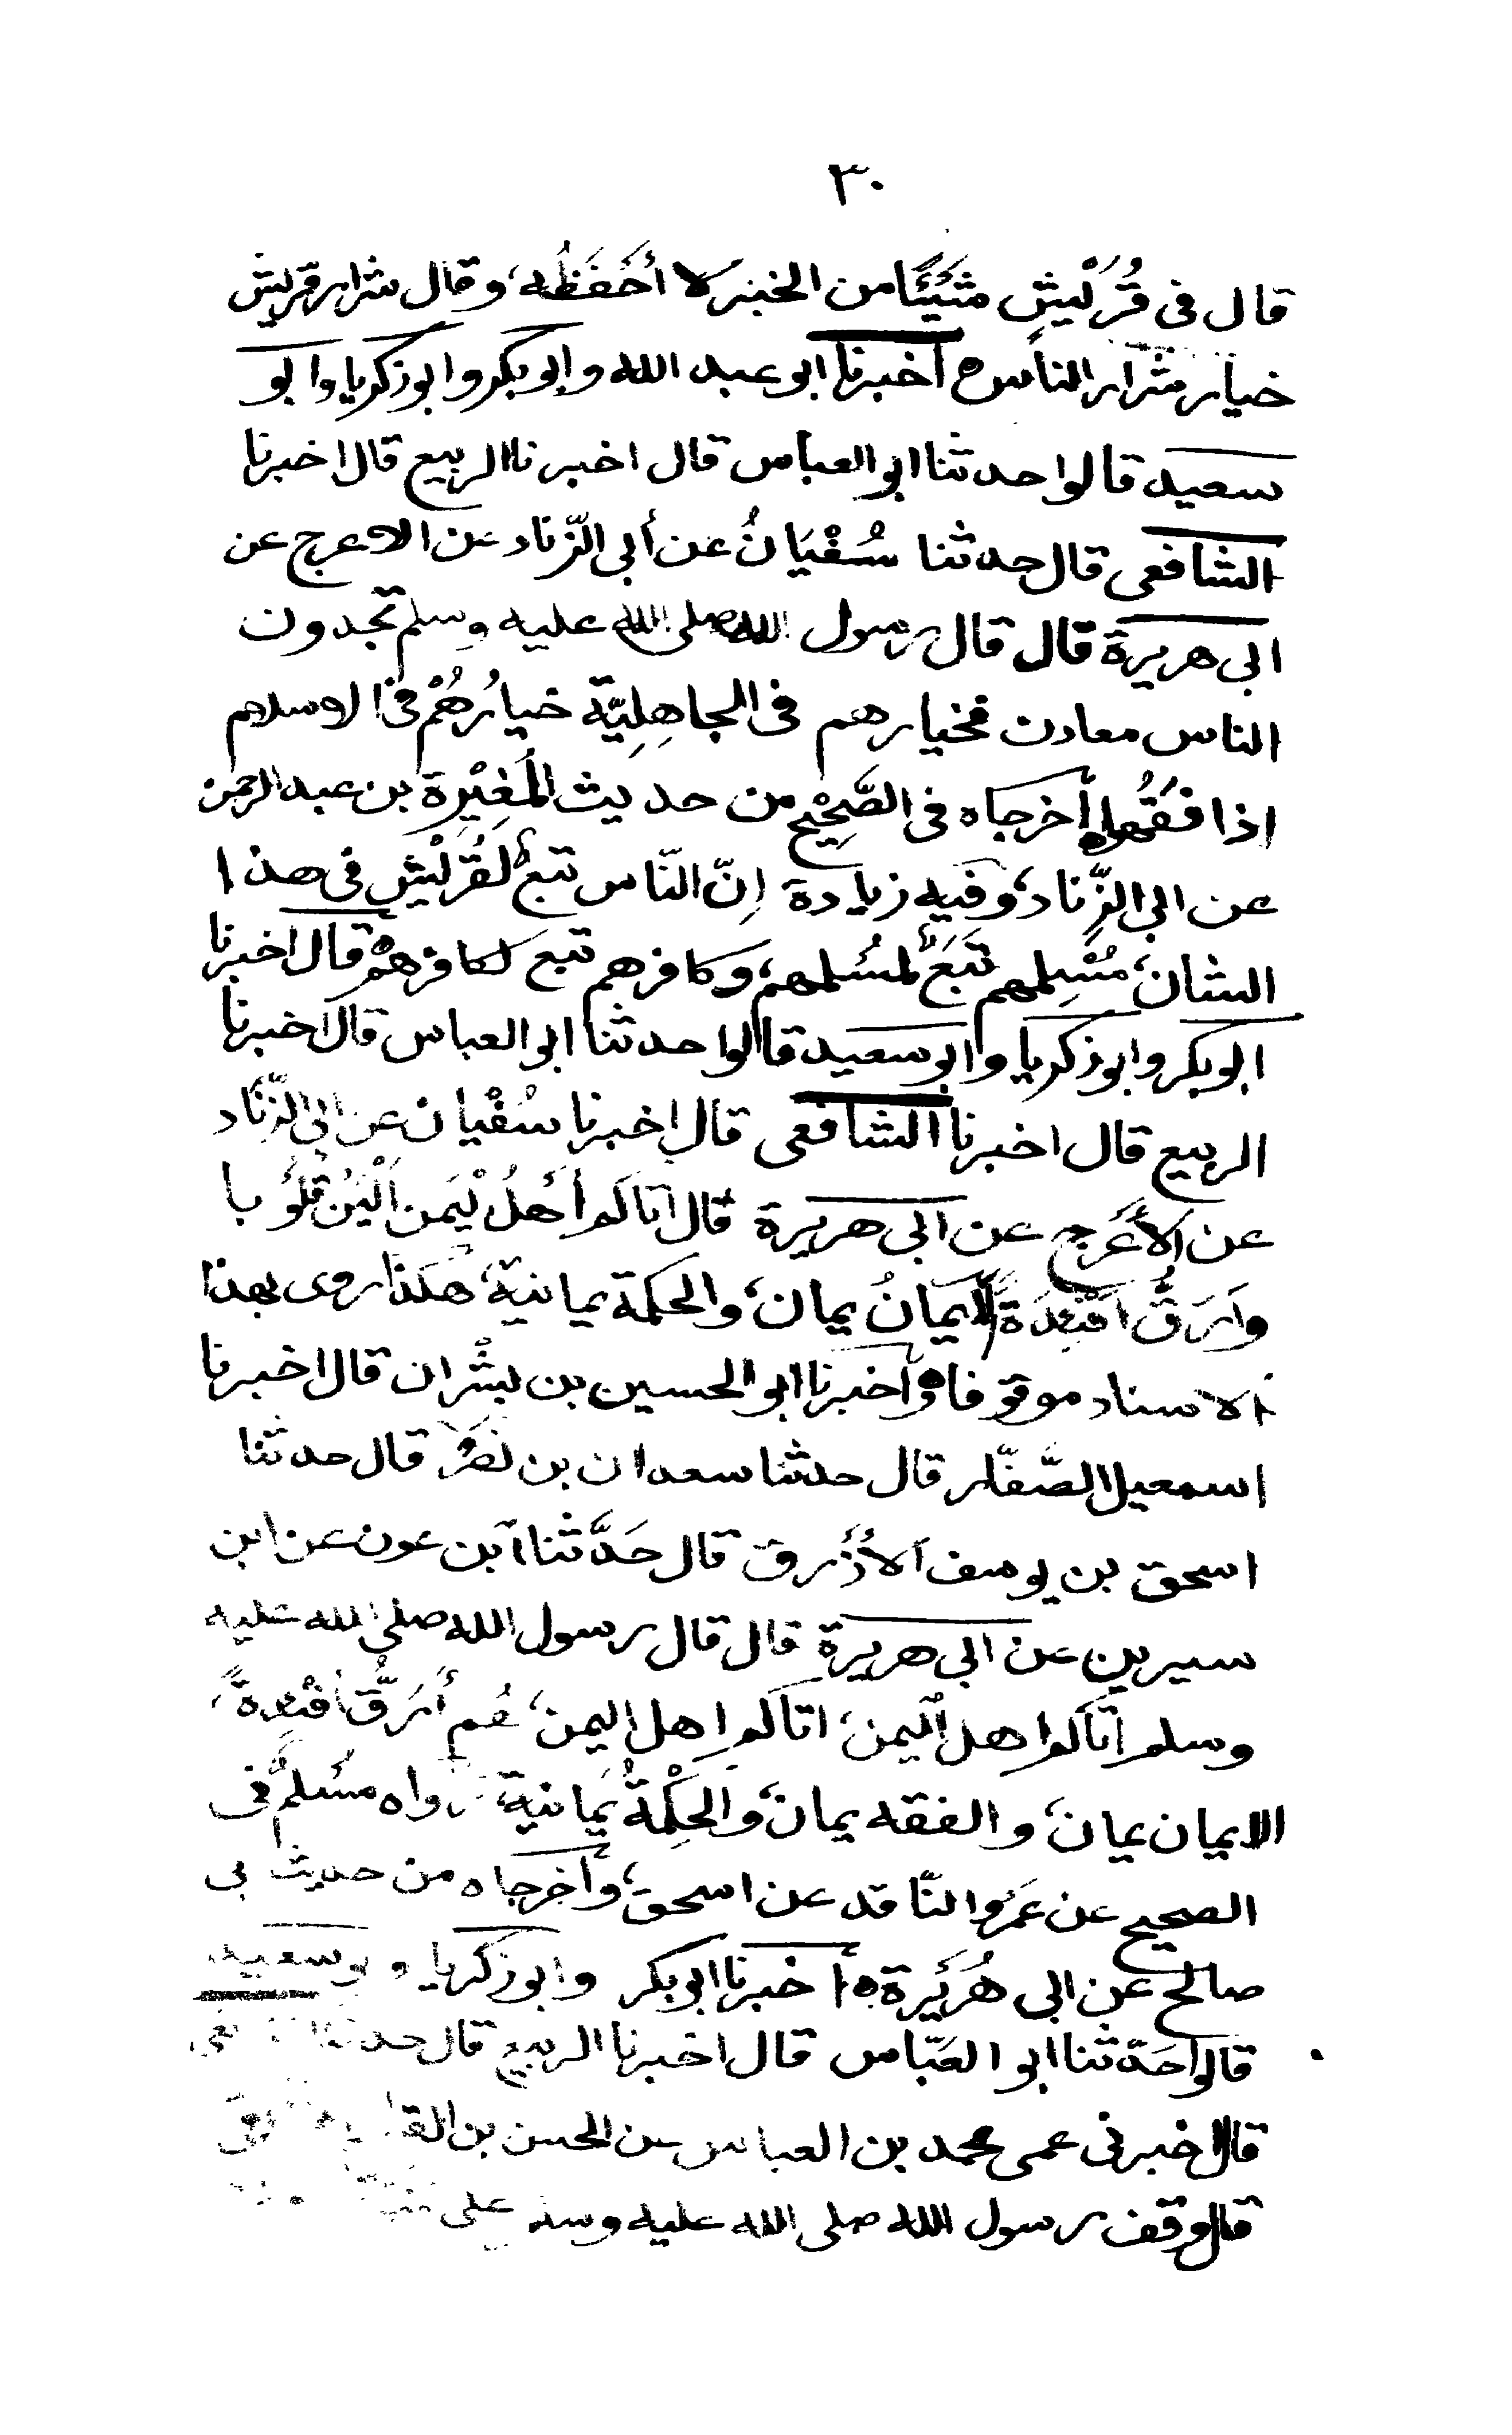 ٣٠
قال فى قُرَيْشٍ شَيْئًا من الخير لا أحْفَظُه، وقال شرار قريش
خيار شرار الناس ه أخبرنا ابو عبد الله وابو بكر وابو زكريا وابو
سعيد قالوا حدثنا ابو العباس قال اخبرنا الربيع قال اخبرنا
الشافعى قال حدثنا سُفْيَانُ عن أبى الزّناد عن الاعرج عن
ابى هريرة قال قال رسول الله صلى الله عليه وسلم تجدون
الناس معادن فخيارهم فى الجاهِلِيّة خيارُهُمْ فى الاسلام
اذا فَقُهوا ه أخرجاه فى الصَّحِيْح من حديث المُغِيْرِة بن عبد الرحمن
عن ابى الزِّناد، وفيه زيادة إنّ النّاس تبعٌ لقُرَيْشٍ فى هذا
الشان، مُسْلِمهم تَبَعٌ لمُسْلمهم، وكافرهم تبع لكافرهم ه قال اخبرنا
ابو بكر وابو زكريا وابو سعيد قالوا حدثنا ابو العباس قال اخبرنا
الربيع قال اخبرنا الشافعى قال اخبرنا سُفْيان عن ابى الزّنَاد
عن الأعْرَج عن ابى هريرة قال أتاكم أهْلُ ليَمَن ألْيَنُ قُلُوْبا
وَاَرَقُّ اَفْئِدَةً الايمَانُ يمان، والحكمة يمانية، هكذا روى بهذا
الاسناد موقوفا ه وأخبرنا ابو الحسين بن بشْران قال اخبرنا
اسمعيل الصَّفّار قال حدثنا سعدان بن نَصْر قال حدثنا
اسحق بن يوسف الأزْرق قال حَدَّثنا ابن عون عن ابن
سيرين عن ابى هريرة قال قال رسول الله صلى الله عليه
وسلم أتاكم اهل اليمن، اتاكم اهل اليمن، هُم أرَقُّ افْئِدةً،
الايمان يمان، والفقه يمان، والحِكْمةُ يَمانية، رواه مسُلمٌ فى
الصحيح عن عَمْرو النّاقد عن اسحق، وأخرجاه من حديث بى
صالح عن ابى هُرَيْرة ه أخبرنا ابو بكر وابو زكريا و بو سعيد
قالوا حَدّثنا ابو العَبّاس قال اخبرنا الربيع قال حدثنا
قال اخبرنى عمى محمد بن العباس عن الحسن بن
قال وقف رسول الله صلى الله عليه وسلم على